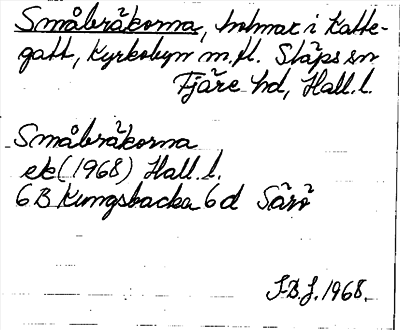 Småbräkorna, holmar i Katte-
gatt, Kyrkobyn m.fl. Släps sn
Fjäre hd, Hall. l.
Småbräkorna
ek (1968) Hall. l.
6 B Kungsbacka 6 d Särö
S.B.J. 1968.